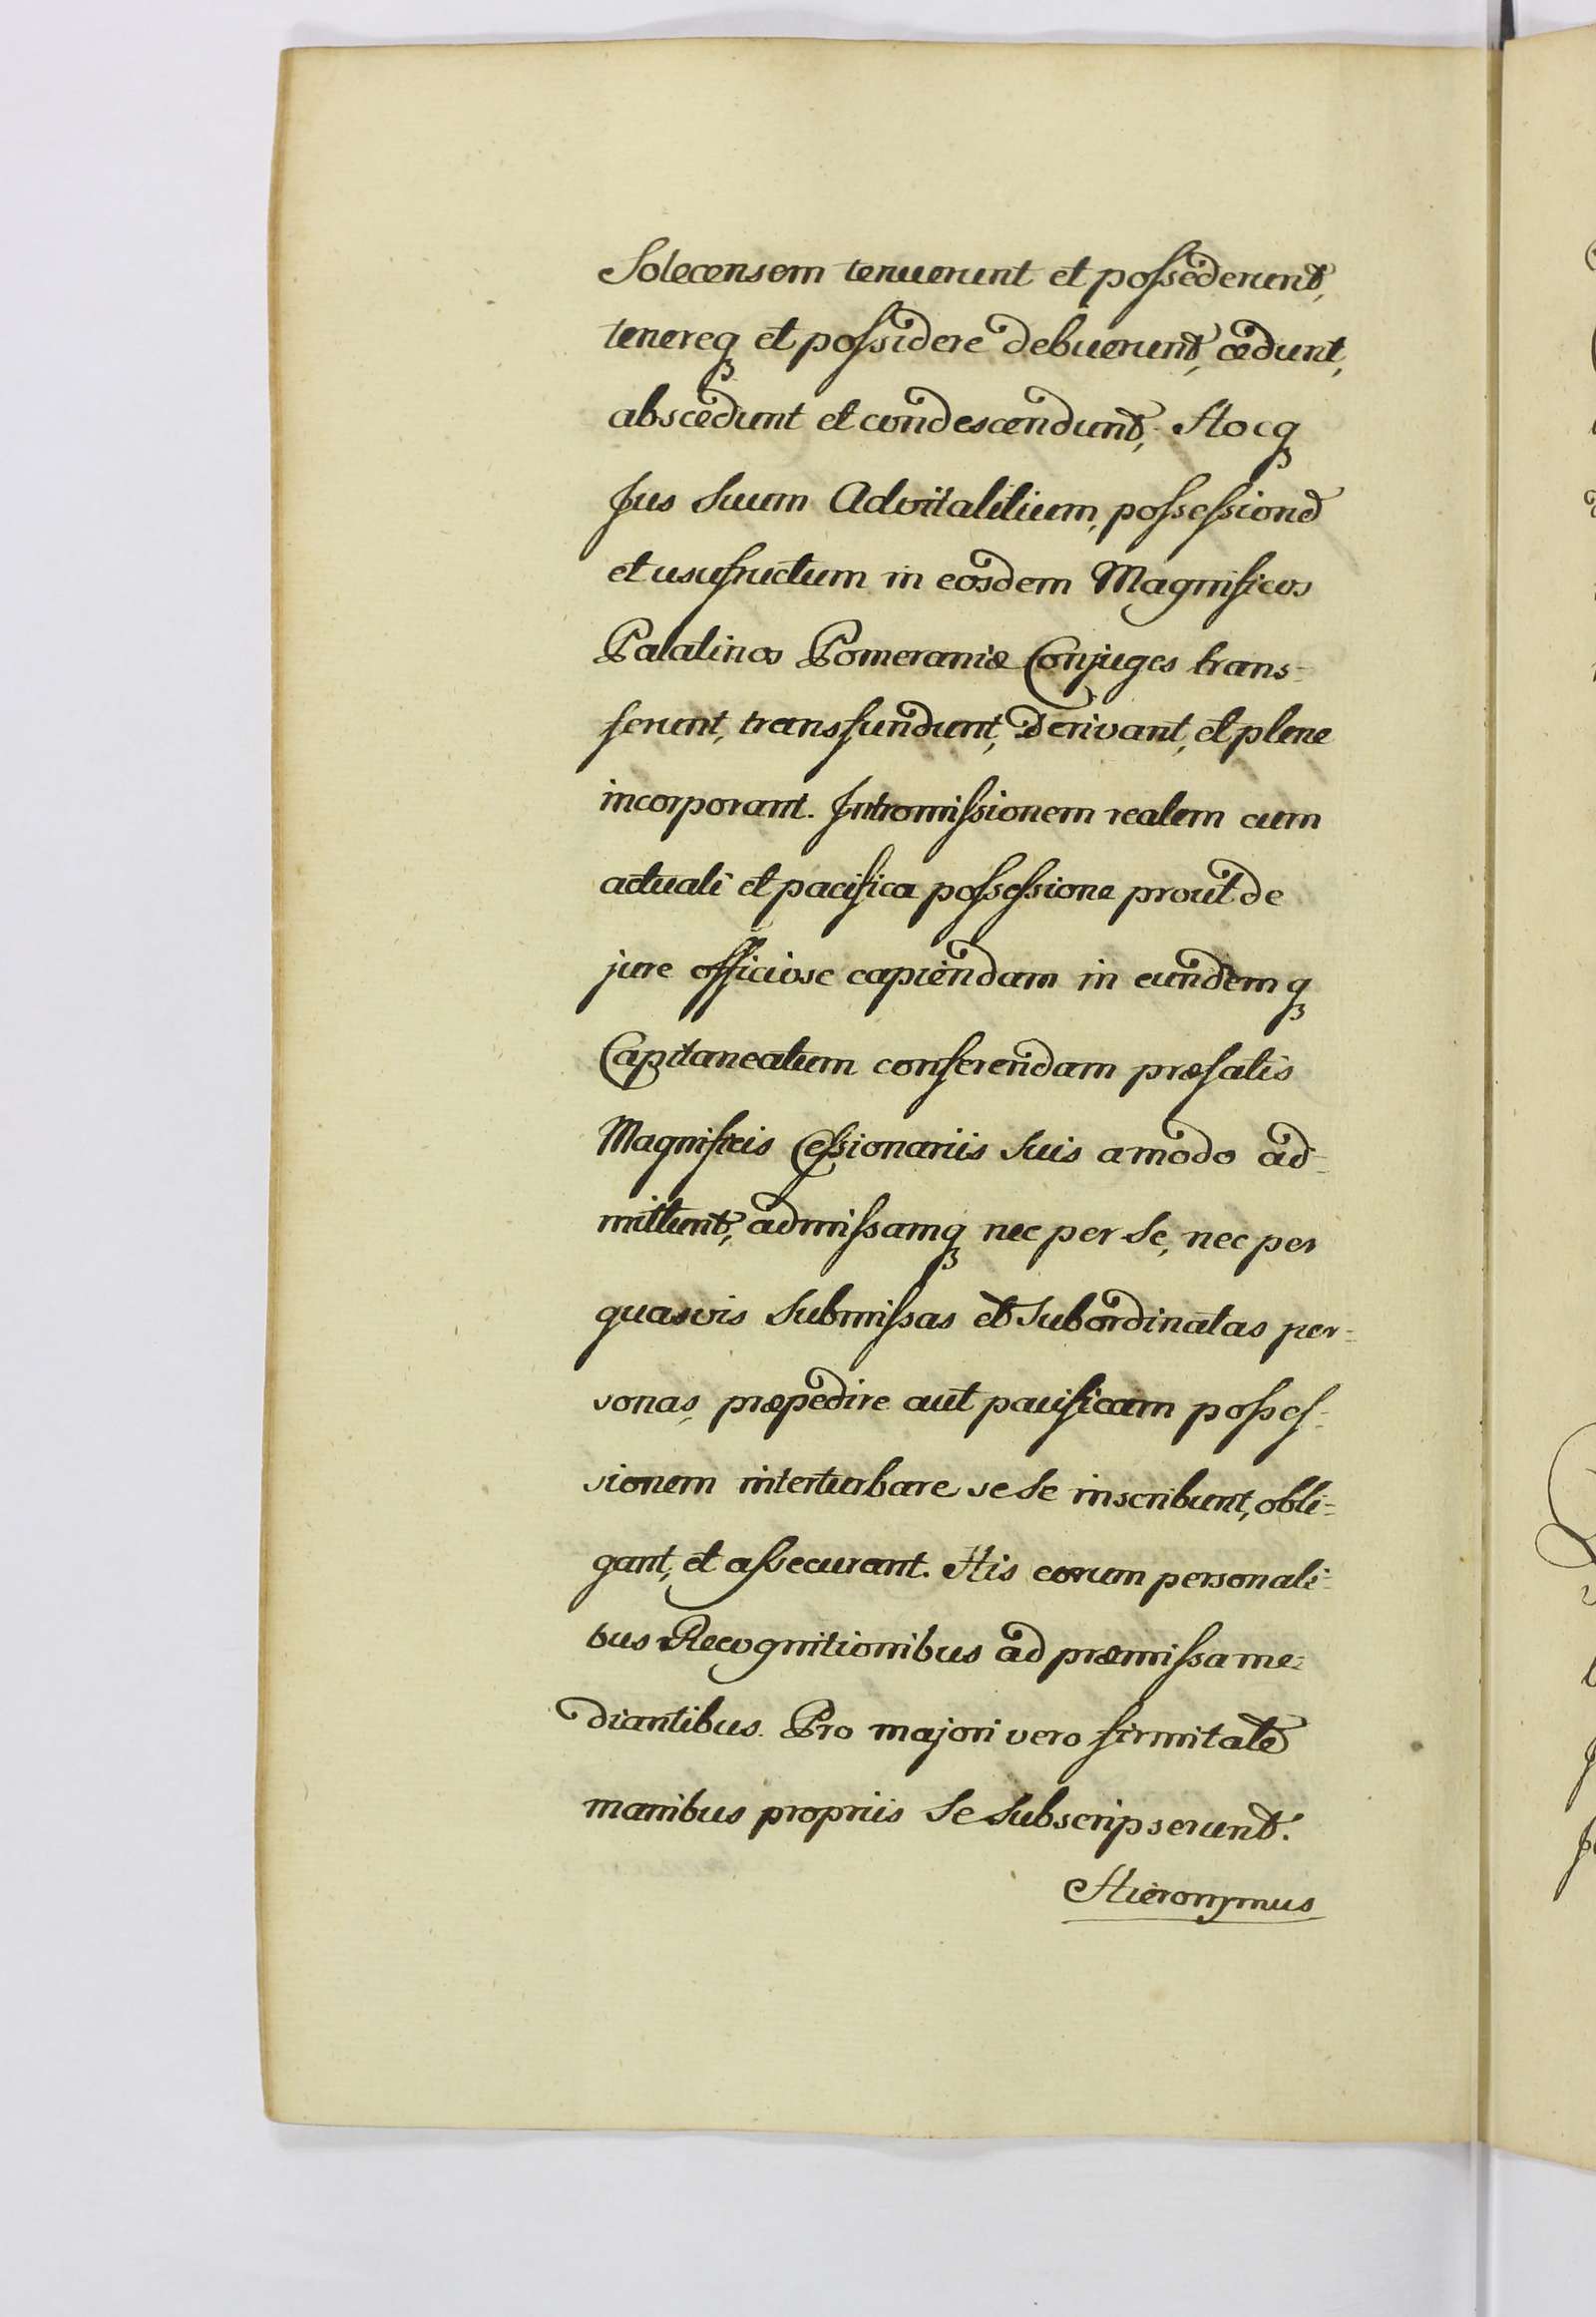 Solecensem tenuerunt et possederunt,
tenereq; et possidere debuerunt, cedunt,
abscedunt et condescendunt, Hocq;
Jus Suum Advitalitium, possessione
et usufructum in eosdem Magnificos
Palatinos Pomeraniæ Conjuges trans-
ferunt, transfundunt, derivant, et plene
incorporant. Intromissionem realem cum
actuali et pacifica possessione prout de
jure officiose capiendam in eundemq;
Capitaneatum conferendam præfatis
Magnificis Cessionariis Suis a modo ad-
mittunt, admissamq; nec per Se, nec per
quasvis Submissas et Subordinatas per-
sonas, præpedire aut pacificam posses-
sionem interturbare se Se inscribunt, obli-
gant, et assecurant. His eorum personali-
bus Recognitionibus ad præmissa me-
diantibus. Pro majori vero firmitate
manibus propriis Se Subscripserunt.
Hieronymus